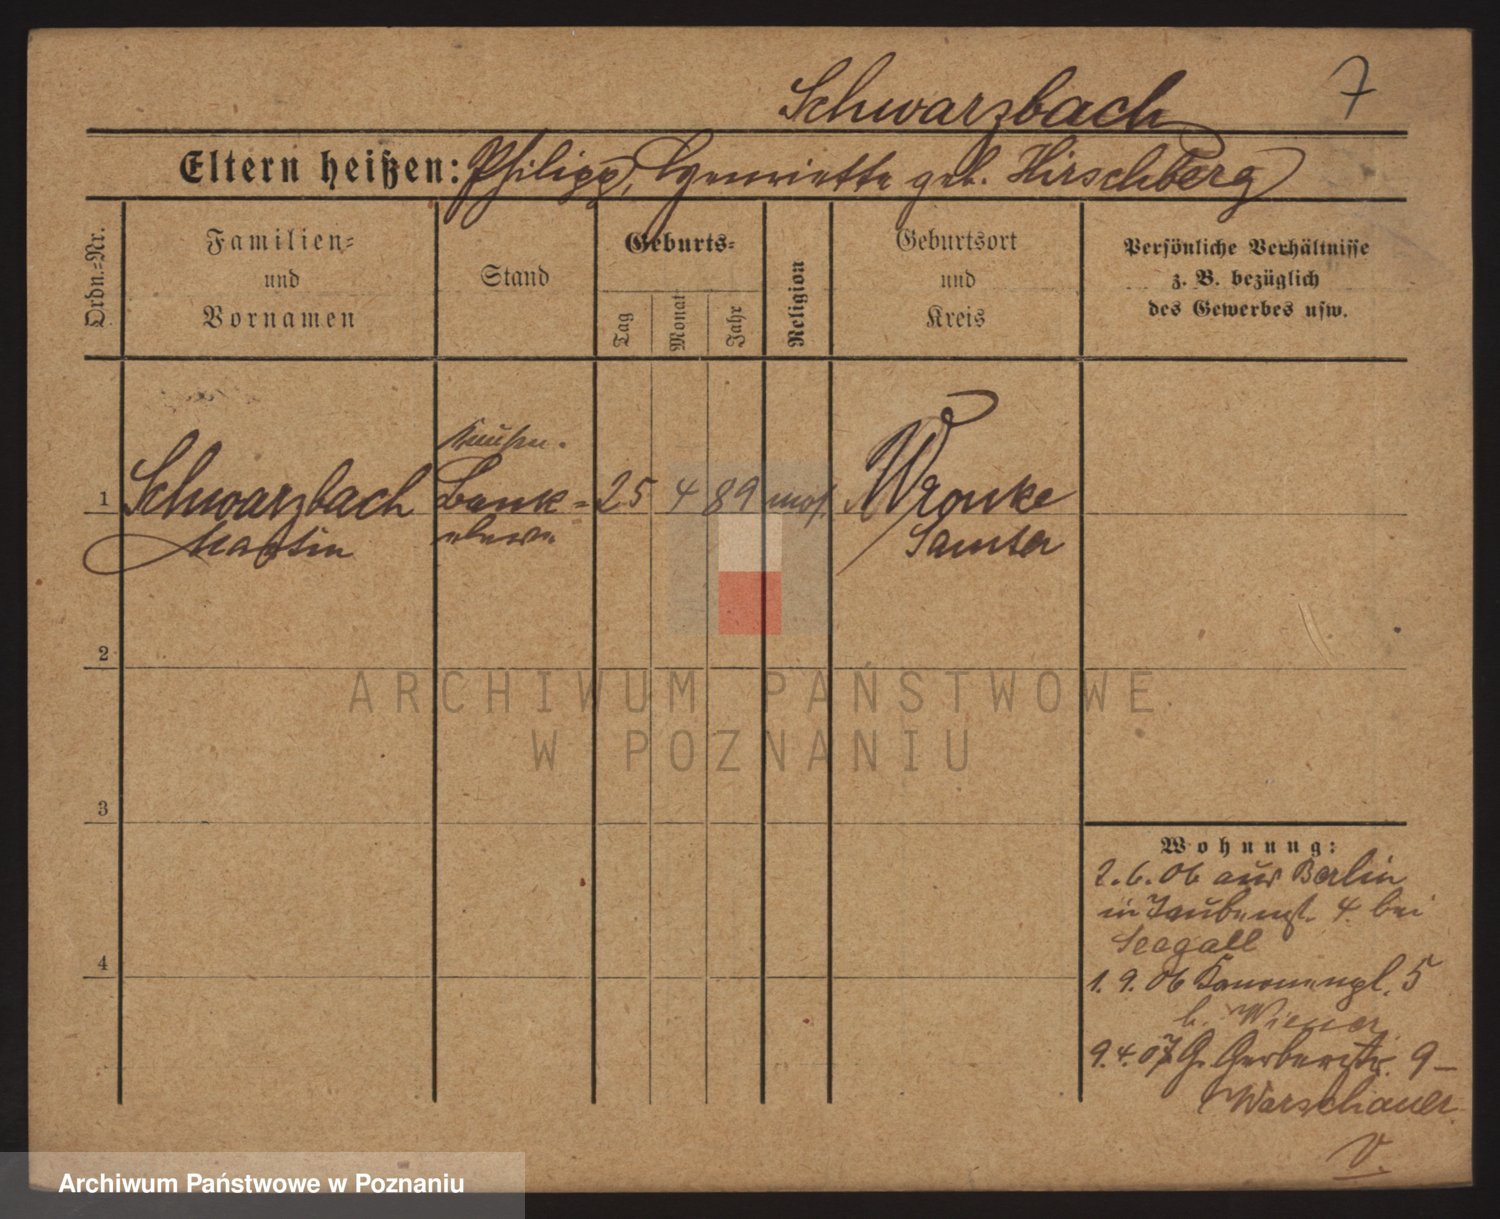 Schwarzbach 7
Eltern heißen: Philipp, Henriette geb. Hirschberg
Ordn.-Nr.
Familien-
und
Vornamen
Stand
Geburts-
Tag
Monat
Jahr
Religion
Geburtsort
und
Kreis
Persönliche Verhältnisse
z. B. bezüglich
des Gewerbes usw.
1 Schwarzbach Bank- 25 4 89 mos. Wronke
Martin eleve Samter
2
3
4
Wohnung:
2.6.06 aus Berlin
in Taubenst. 4. bei
Seagall
1.9.06 Kanonenpl. 5
b. Wiener
9.4.07 G. Gerberstr. 9 -
Warschauer
V.
ARCHIWUM PAŃSTWOWE
W POZNANIU
Archiwum Państwowe w Poznaniu